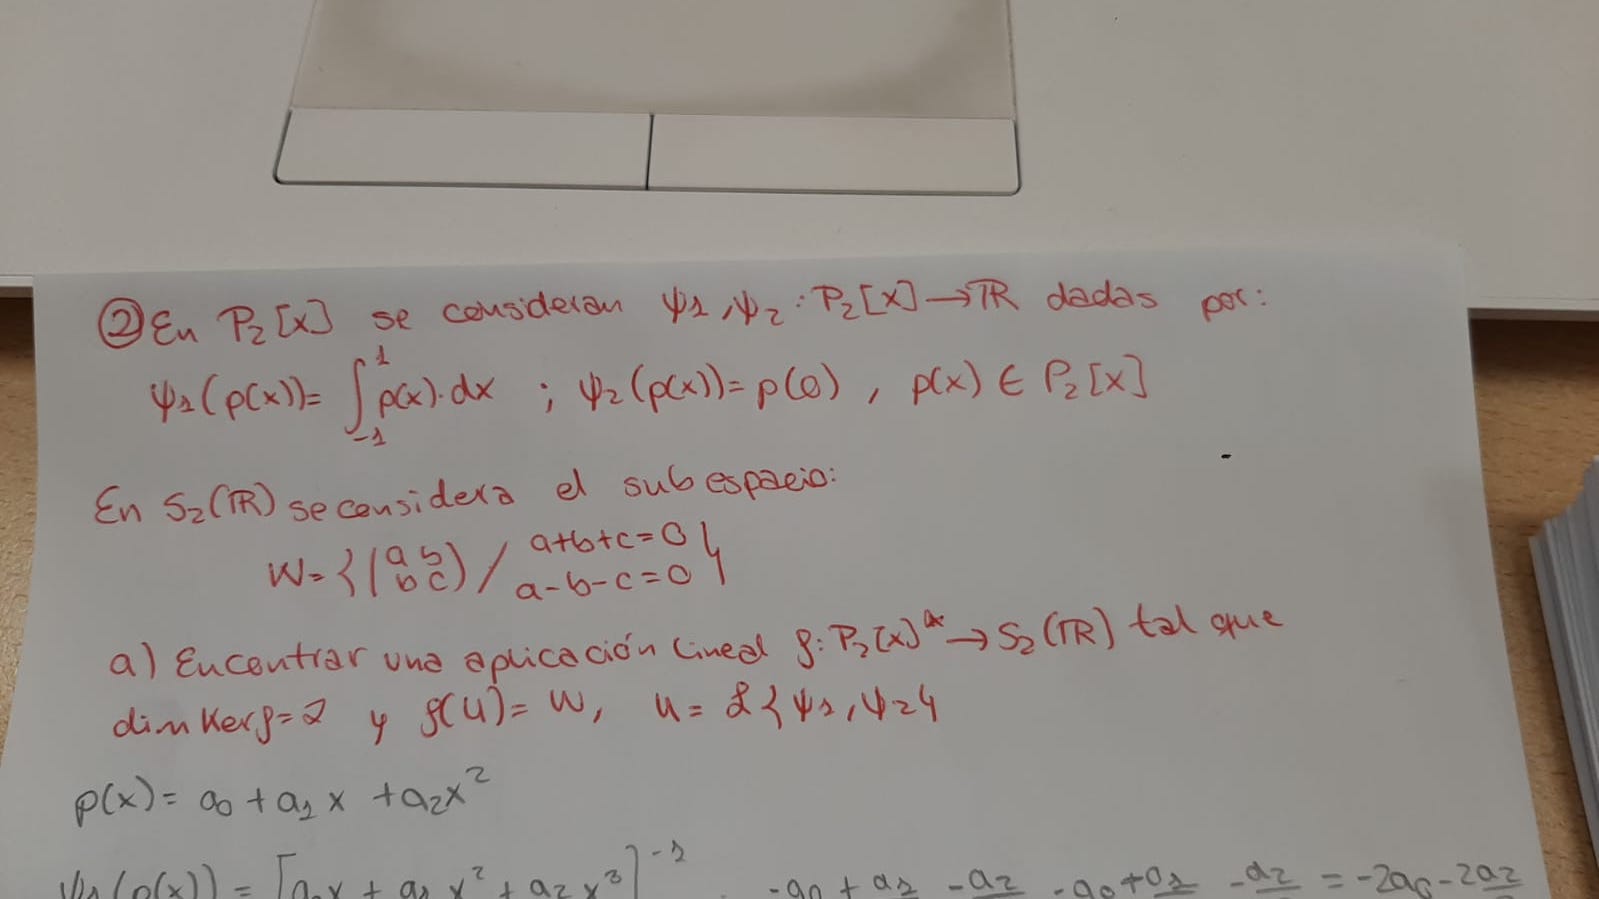 ② En P₂[x] se consideran ψ₁, ψ₂ : P₂[x] → ℝ dadas por:
ψ₁(p(x)) = ∫₋₁¹ p(x)·dx ; ψ₂(p(x)) = p(0) , p(x) ∈ P₂[x]
En S₂(ℝ) se considera el subespacio:
W = {(a b
b c) / a+b+c=0
a-b-c=0}
a) Encontrar una aplicación lineal f: P₂[x]* → S₂(ℝ) tal que
dim Ker f = 2 y f(U) = W, U = L{ψ₁, ψ₂}
p(x) = a₀ + a₁x + a₂x²
ψ₁(p(x)) = [a₀x + a₁x² + a₂x³]⁻¹ -a₀ + a₁ - a₂ - a₀ + a₁ - a₂ = -2a₀ - 2a₂